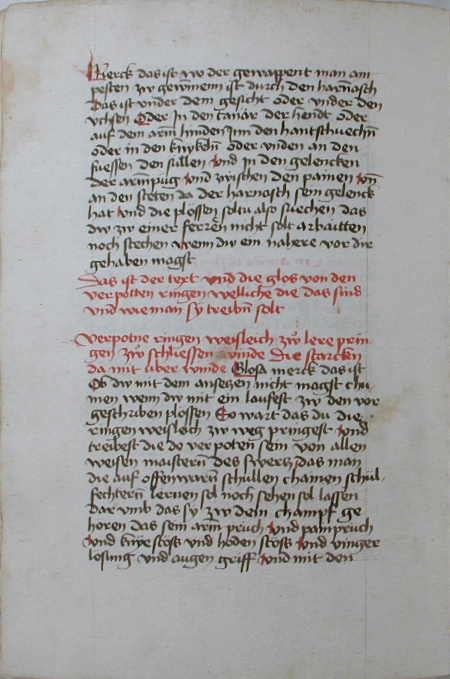 Merck das ist wo der gewappent man am
pesten zw gewinnem ist durch den harnasch
Das ist vnder dem gesicht oder vnder den
vchsen Oder Jn den tanär der hendt oder
auf den arm hinden Jnn den hantschuechñ
oder in den knykeln oder vnden an den
fuessen den sullen Vnd Jn den gelencken
der armpug Vnd zwischen den painen Vñ
an den steten da der harnasch sein gelenck
hat Vnd die plossen soltu also suechen das
dw zw einer ferren nicht solt arbaitten
noch stechen wenn dw ein nahere vor dir
gehaben magst
Das ist der text vnd die glos von den
verpotten ringen welliche die das sind
vnd wie man sÿ treibñ solt
Verpotne ringen weisleich zw lere prin
gen zw schliessen vinde Die starcken
da mit uber winde Glosa merck das ist
Ob dw mit dem ansetzen nicht magst chu
men wem dw mit ein laufest zw den vor
geschriben plossen So wart das du die
ringen weisleich zw weg pringest Vnd
treibest die do ver poten sein von allen
weisen maisterñ des swertz das man
die auf offenwarñ schullen chainen schül
fechterñ lernen sol noch sehen sol lassen
dar vmb das sy zw dem champf ge
horen das sein arm pruch Vnd painpruch
Vnd knÿestöss vnd hoden stöss Vnd vinger
losung vnd augen griff Vnd mit den